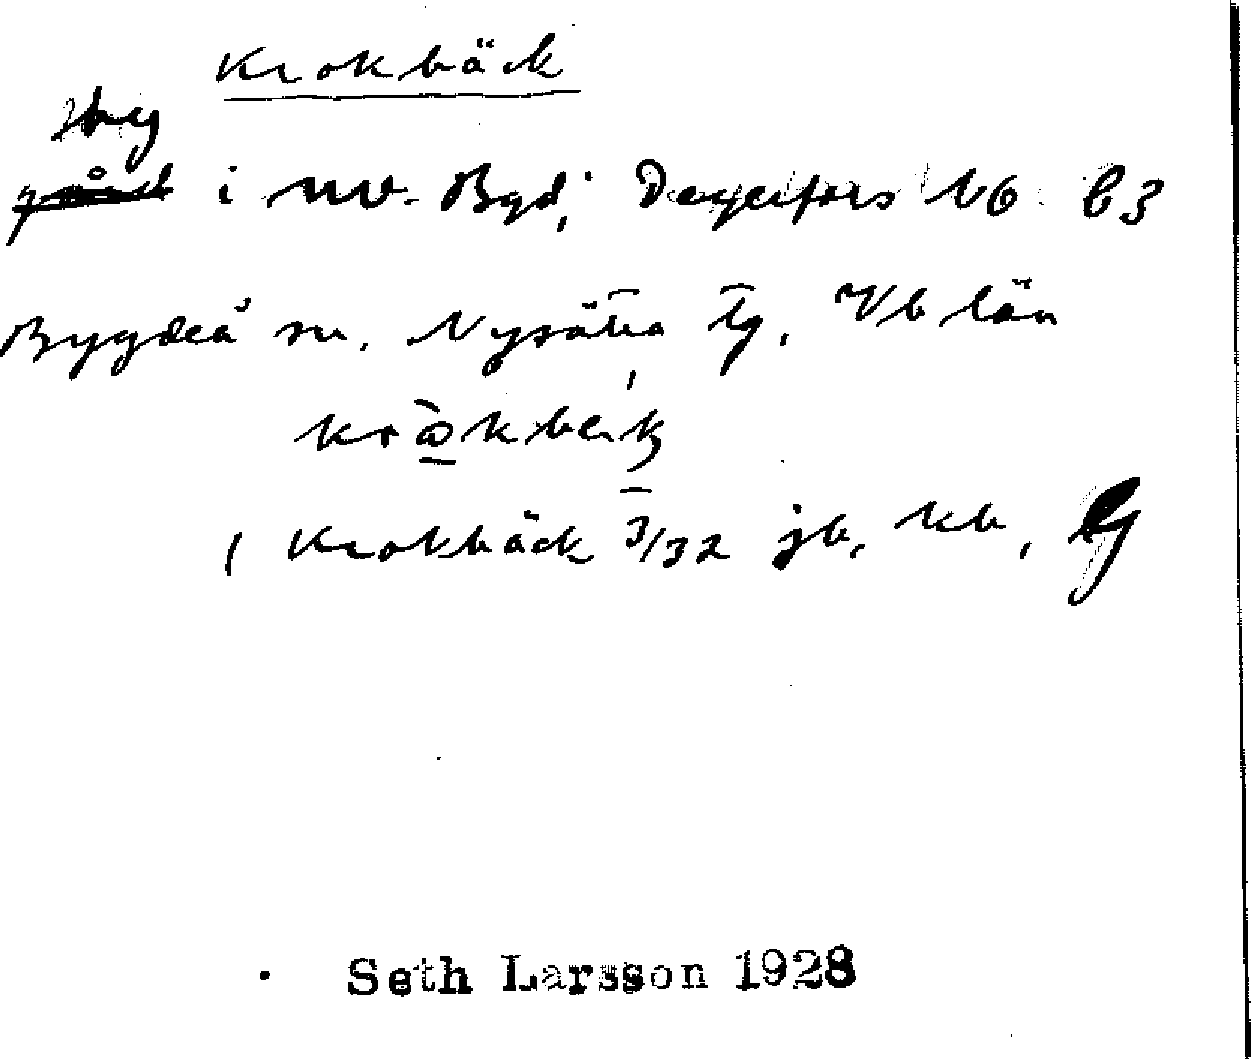 Krokbäck
Hmg
gård i nv. Bgd; Degerfors Vb b3
Bygdeå sn. Nysätra tg, Vb län
Krokbäck 3/32 jb, kb,
Seth Larsson 1928